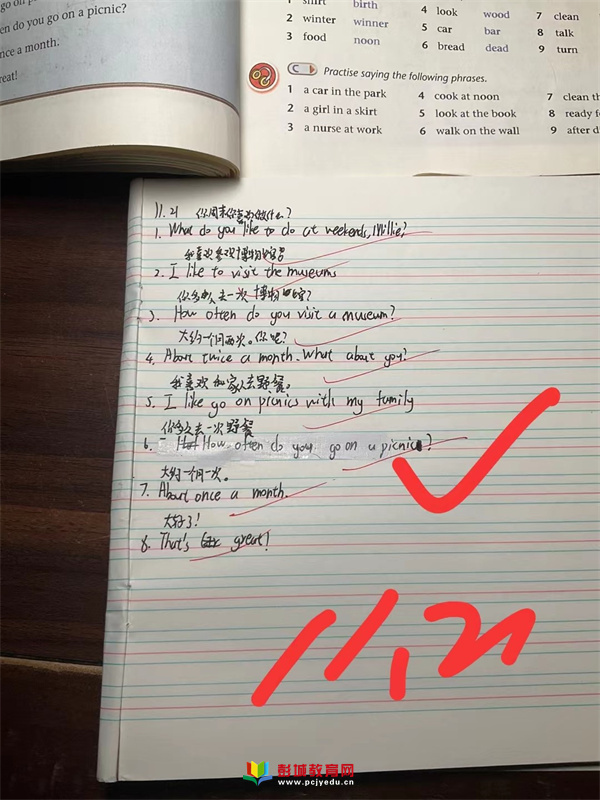 go on a picnic?
en do you go on a picnic?
nce a month.
reat!
1 shirt birth
2 winter winner
3 food noon
4 look wood
5 car bar
6 bread dead
7 clean
8 talk
9 turn
C Practise saying the following phrases.
1 a car in the park
2 a girl in a skirt
3 a nurse at work
4 cook at noon
5 look at the book
6 walk on the wall
7 clean th
8 ready fo
9 after di
11.21 你周末你喜欢做什么?
1. What do you like to do at weekends, Millie?
我喜欢参观博物馆
2. I like to visit the museums
你多久去一次博物馆?
3. How often do you visit a museum?
大约一个月两次。你呢?
4. About twice a month. What about you?
我喜欢和家人去野餐。
5. I like go on picnics with my family
你多久去一次野餐
6. How often do you go on a picnic?
大约一个月一次。
7. About once a month.
太好了!
8. That's great!
11,21
彭城教育网
www.pcjyedu.cn